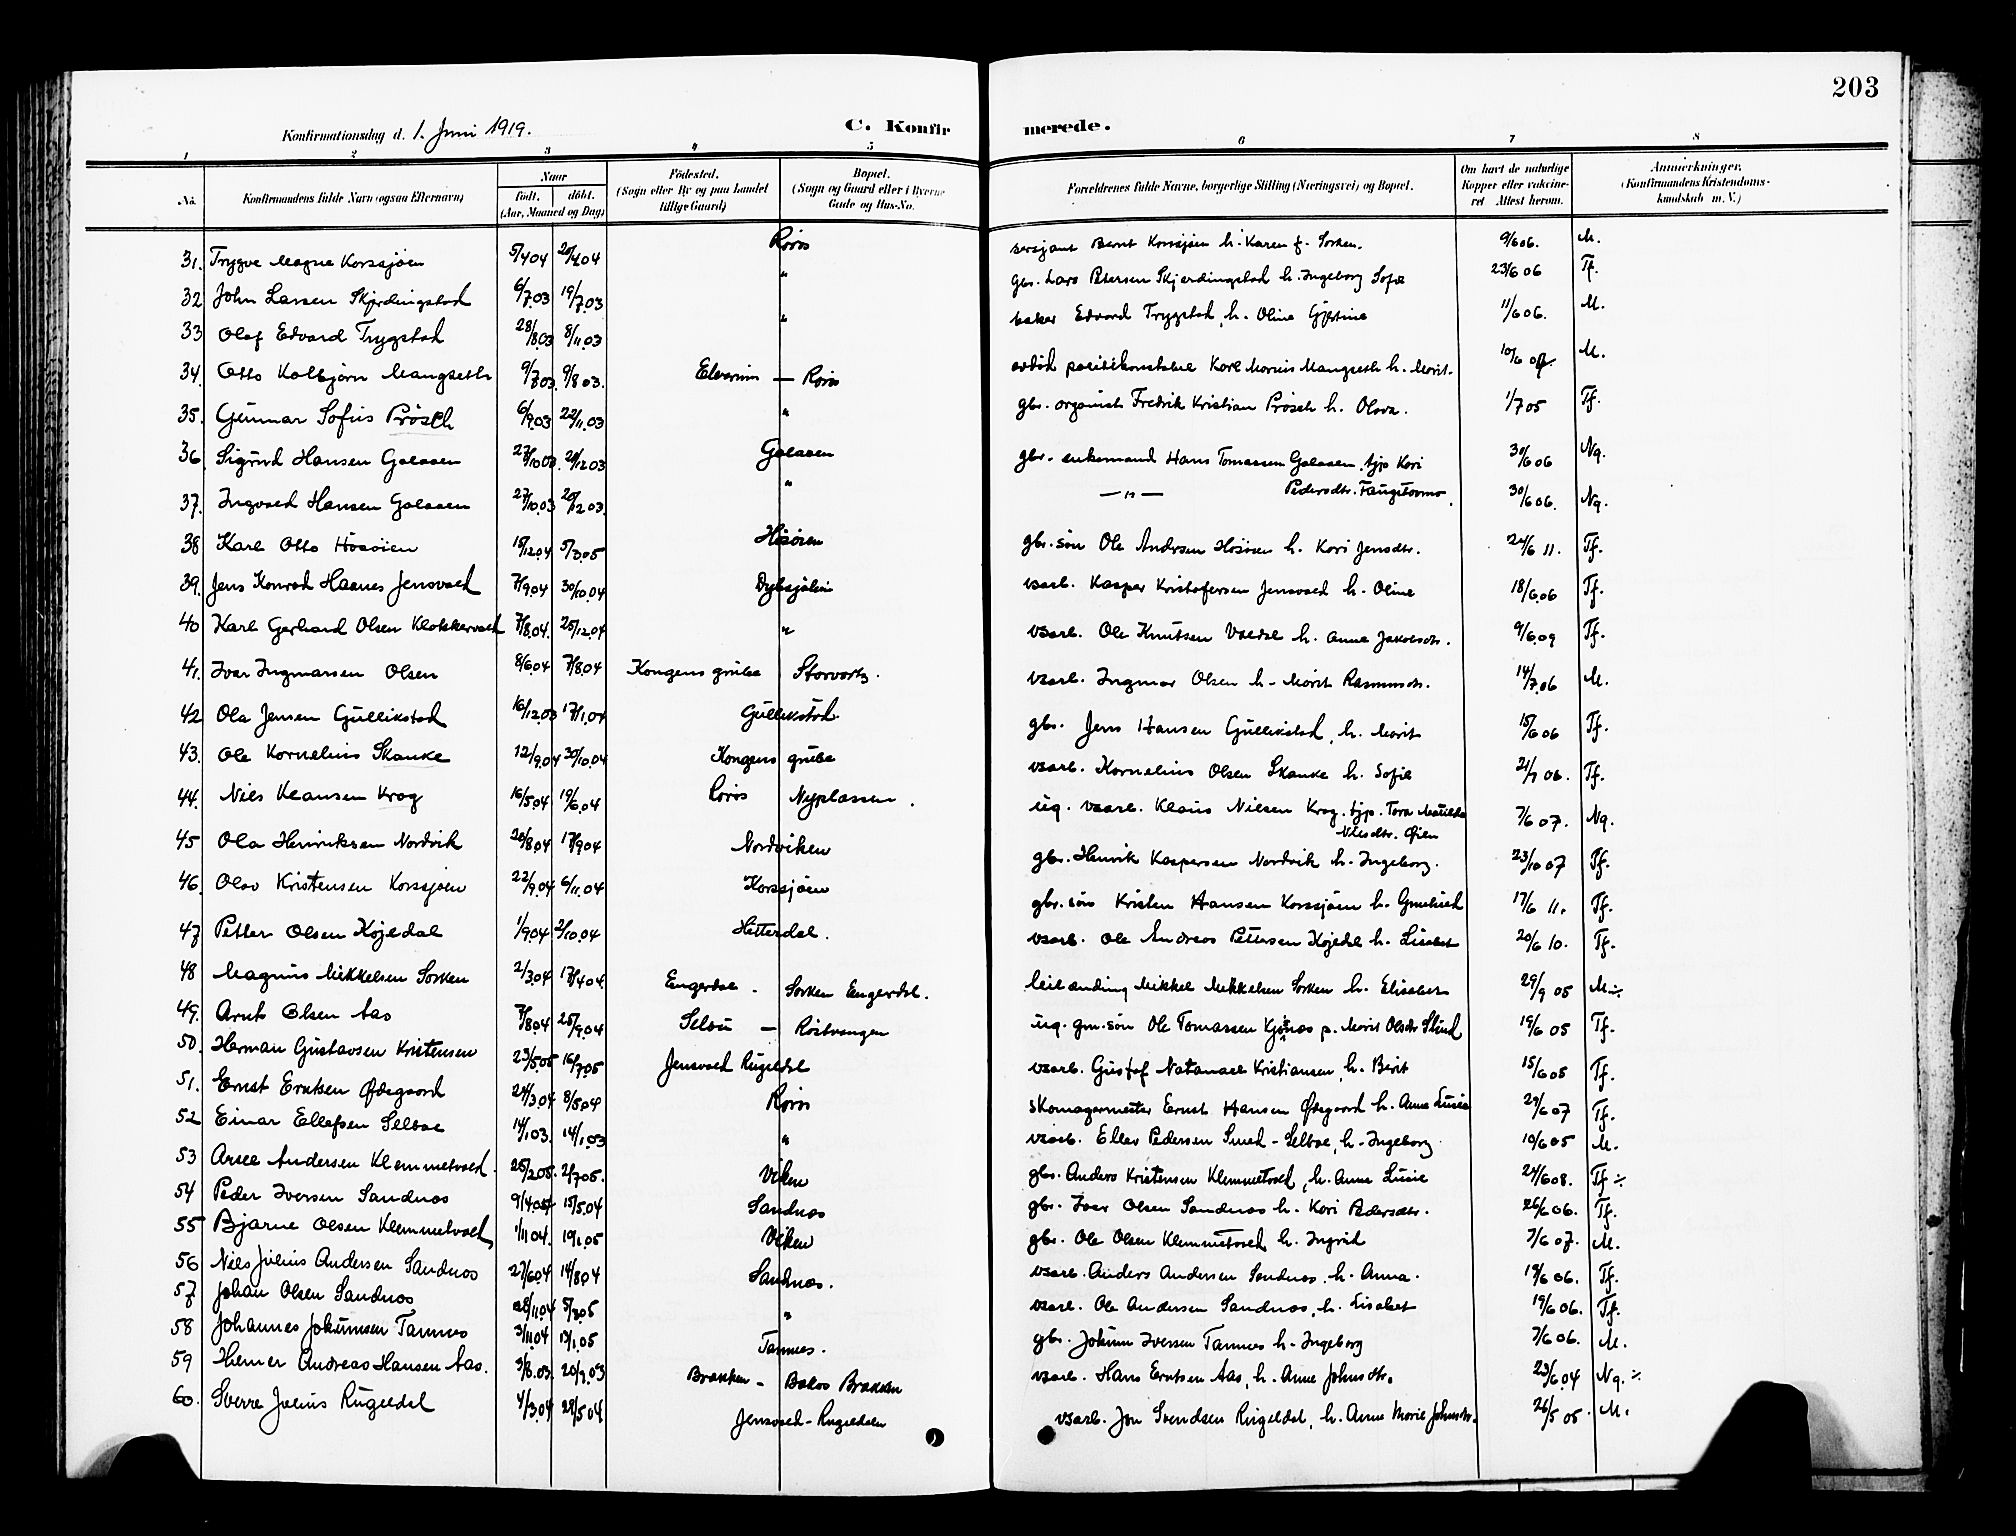 203
Konfirmationsdag d. 1. Juni 1919. C. Konfir merede.
1 2 3 4 5 6 7 8
No. Konfirmandens fulde Navn (ogsaa Efternavn) Naar født. døbt. (Aar, Maaned og Dag) Fødested. (Sogn eller By og paa Landet tillige Gaard) Bopæl. (Sogn og Gaard eller i Byerne Gade og Hus-No. Forældrenes fulde Navne, borgerlige Stilling (Næringsvei) og Bopæl. Om havt de naturlige Kopper eller vaccineret Attest herom. Anmærkninger. (Konfirmandens Kristendomskundskab m. V.)
31. Trygve Magne Korssjøen 5/4 04 20/4 04 Røros sersjant Bernt Korssjøen h. Karen f. Sorken. 9/6 06. M.
32 John Larsen Skjerdingstad 6/7.03 19/7.03 " gbr. Lars Petersen Skjerdingstad h. Ingeborg Sofie 23/6 06 Tf.
33 Olaf Edvard Trygstad 28/8.03 8/11.03 " baker Edvard Trygstad, h. Oline 11/6 06. M.
34. Otto Kolbjørn Mangseth 9/7.03 9/8 03. Elverum — Røros avdød politikonstabel Karl Morius Mangseth h. Marit. 10/6 M.
35. Gunnar Sofus Prösch 6/9.03 22/11.03 " gbr. organist Fredrik Kristian Prösch h. Olava. 1/7 05 Tf.
36. Sigurd Hansen Galaaen 27/10.03 20/12.03 Galaaen gbr. enkemand Hans Tomassen Galaaen, tjp Kari 30/6 06 Ng.
37. Ingvald Hansen Galaaen 27/10.03 20/12.03. " — " — Pedersdtr. 30/6 06. Ng.
38 Karl Otto Hosøien 15/12.04 5/3.05 Hosøien gbr. søn Ole Andersen Hosøien h. Kari Jensdtr. 24/6 11. Tf.
39. Jens Konrad Haanes Jensvold 7/9.04 30/10.04 vsarb. Kasper Kristofersen Jensvold h. Oline 18/6.06 Tf.
40 Karl Gerhard Olsen Klokkervold 7/8.04. 25/12.04 " vsarb. Ole Knutsen h. Anna Jakobsdtr. 9/6.09 Tf.
41. Ivar Ingmarsen Olsen 8/6.04 7/8.04 Kongens grube Storvartz. vsarb. Ingmar Olsen h. Marit Rasmusdtr. 14/7.06 M.
42 Ola Jensen Gullikstad 16/12.03 17/1.04 Gullikstad gbr. Jens Hansen Gullikstad, h. Marit 15/6 06 Tf.
43. Ole Kornelius Skanke 12/9.04 30/10.04 Kongens grube vsarb. Kornelius Olsen Skanke h. Sofie 21/7 06. Tf.
44. Niels Klausen Krog 16/5.04 19/6.04 Røros Nyplassen. ug. vsarb. Klaus Nielsen Krog. tjp. Tora 7/6 07. Ng.
Nilsdtr. Øien
45 Ola Henriksen Nordvik 20/8.04 17/9.04 Nordviken gbr. Henrik Kaspersen Nordvik h. Ingeborg. 23/10 07 Tf.
46. Olav Kristensen Korssjøen 22/9.04 6/11.04 Korssjøen gbr. søn Kristen Hansen Korssjøen h. Gunhild 17/6 11. Tf.
47 Petter Olsen Kojedal 1/9.04 2/10.04 Hitterdal. vsarb. Ole Andreas Pettersen Kojedal h. Lisabet 20/6 10. Tf.
48 Magnus Mikkelsen Sorken 2/3.04 17/4 04 Engerdal - Sorken Engerdal. leilending Mikkel Mikkelsen Sorken h. Elisabet 29/9 05 M÷
49. Arnt Olsen Aas 7/8.04 25/9.04 Selbu — Røstvangen ug. gm. søn Ole Tomassen p. Marit Olsdtr 19/6 05 Tf.
50. Herman Gustavsen Kristensen 23/5.05 16/7.05 Jensvold Rugeldal vsarb. Gustaf Natanael Kristiansen, h. Birit 15/6 05 Tf.
51. Ernst Erntsen Ødegaard 24/3.04 8/5.04 Røros skomagermester Ernst Hansen Ødegaard h. Anna Lusie 29/6 07 Tf.
52 Einar Ellefsen Selboe 14/1.03. 14/1.03 " vsarb. Ellev Pedersen Smed-Selboe, h. Ingeborg. 10/6 05 M.
53 Andersen Klemmetvold. 25/2.05. 2/7 05. Viken gbr. Anders Kristensen Klemmetvold, h. Anna Lusie 24/6 08. Tf ÷
54 Peder Iversen Sandnes 9/4.04 15/5.04 Sandnes gbr. Ivar Olsen Sandnes h. Kari Pedersdtr. 26/6 06. Tf.
55 Bjarne Olsen Klemmetvold 1/11 04. 19/1.05 Viken gbr. Ole Olsen Klemmetvold h. Ingrid 7/6 07. M.
56 Niels Julius Andersen Sandnes 27/6.04 14/8.04 Sandnes. vsarb. Anders Andersen Sandnes, h. Anna. 19/6 06. Tf.
57 Johan Olsen Sandnes 28/11.04 5/3.05 " vsarb. Ole Andersen Sandnes, h. Lisabet 19/6 06. Tf.
58 Johannes Jokumsen Tamnes 3/11.04 15/1.05 Tamnes. gbr. Jokum Iversen Tamnes h. Ingeborg 7/6 06. M.
59 Hemer Andreas Hansen Aas. 3/8.03. 20/9.03 Brekken - Brekken vsarb. Hans Erntsen Aas, h. Anne Johnsdtr. 23/6.04 Ng. ÷
60. Sverre Julius Rugeldal 4/3.04 29/5 04 Jensvold-Rugeldalen vsarb. Jon Svendsen Rugeldal, h. Anne Marie Johnsdtr. 26/5 05. M.